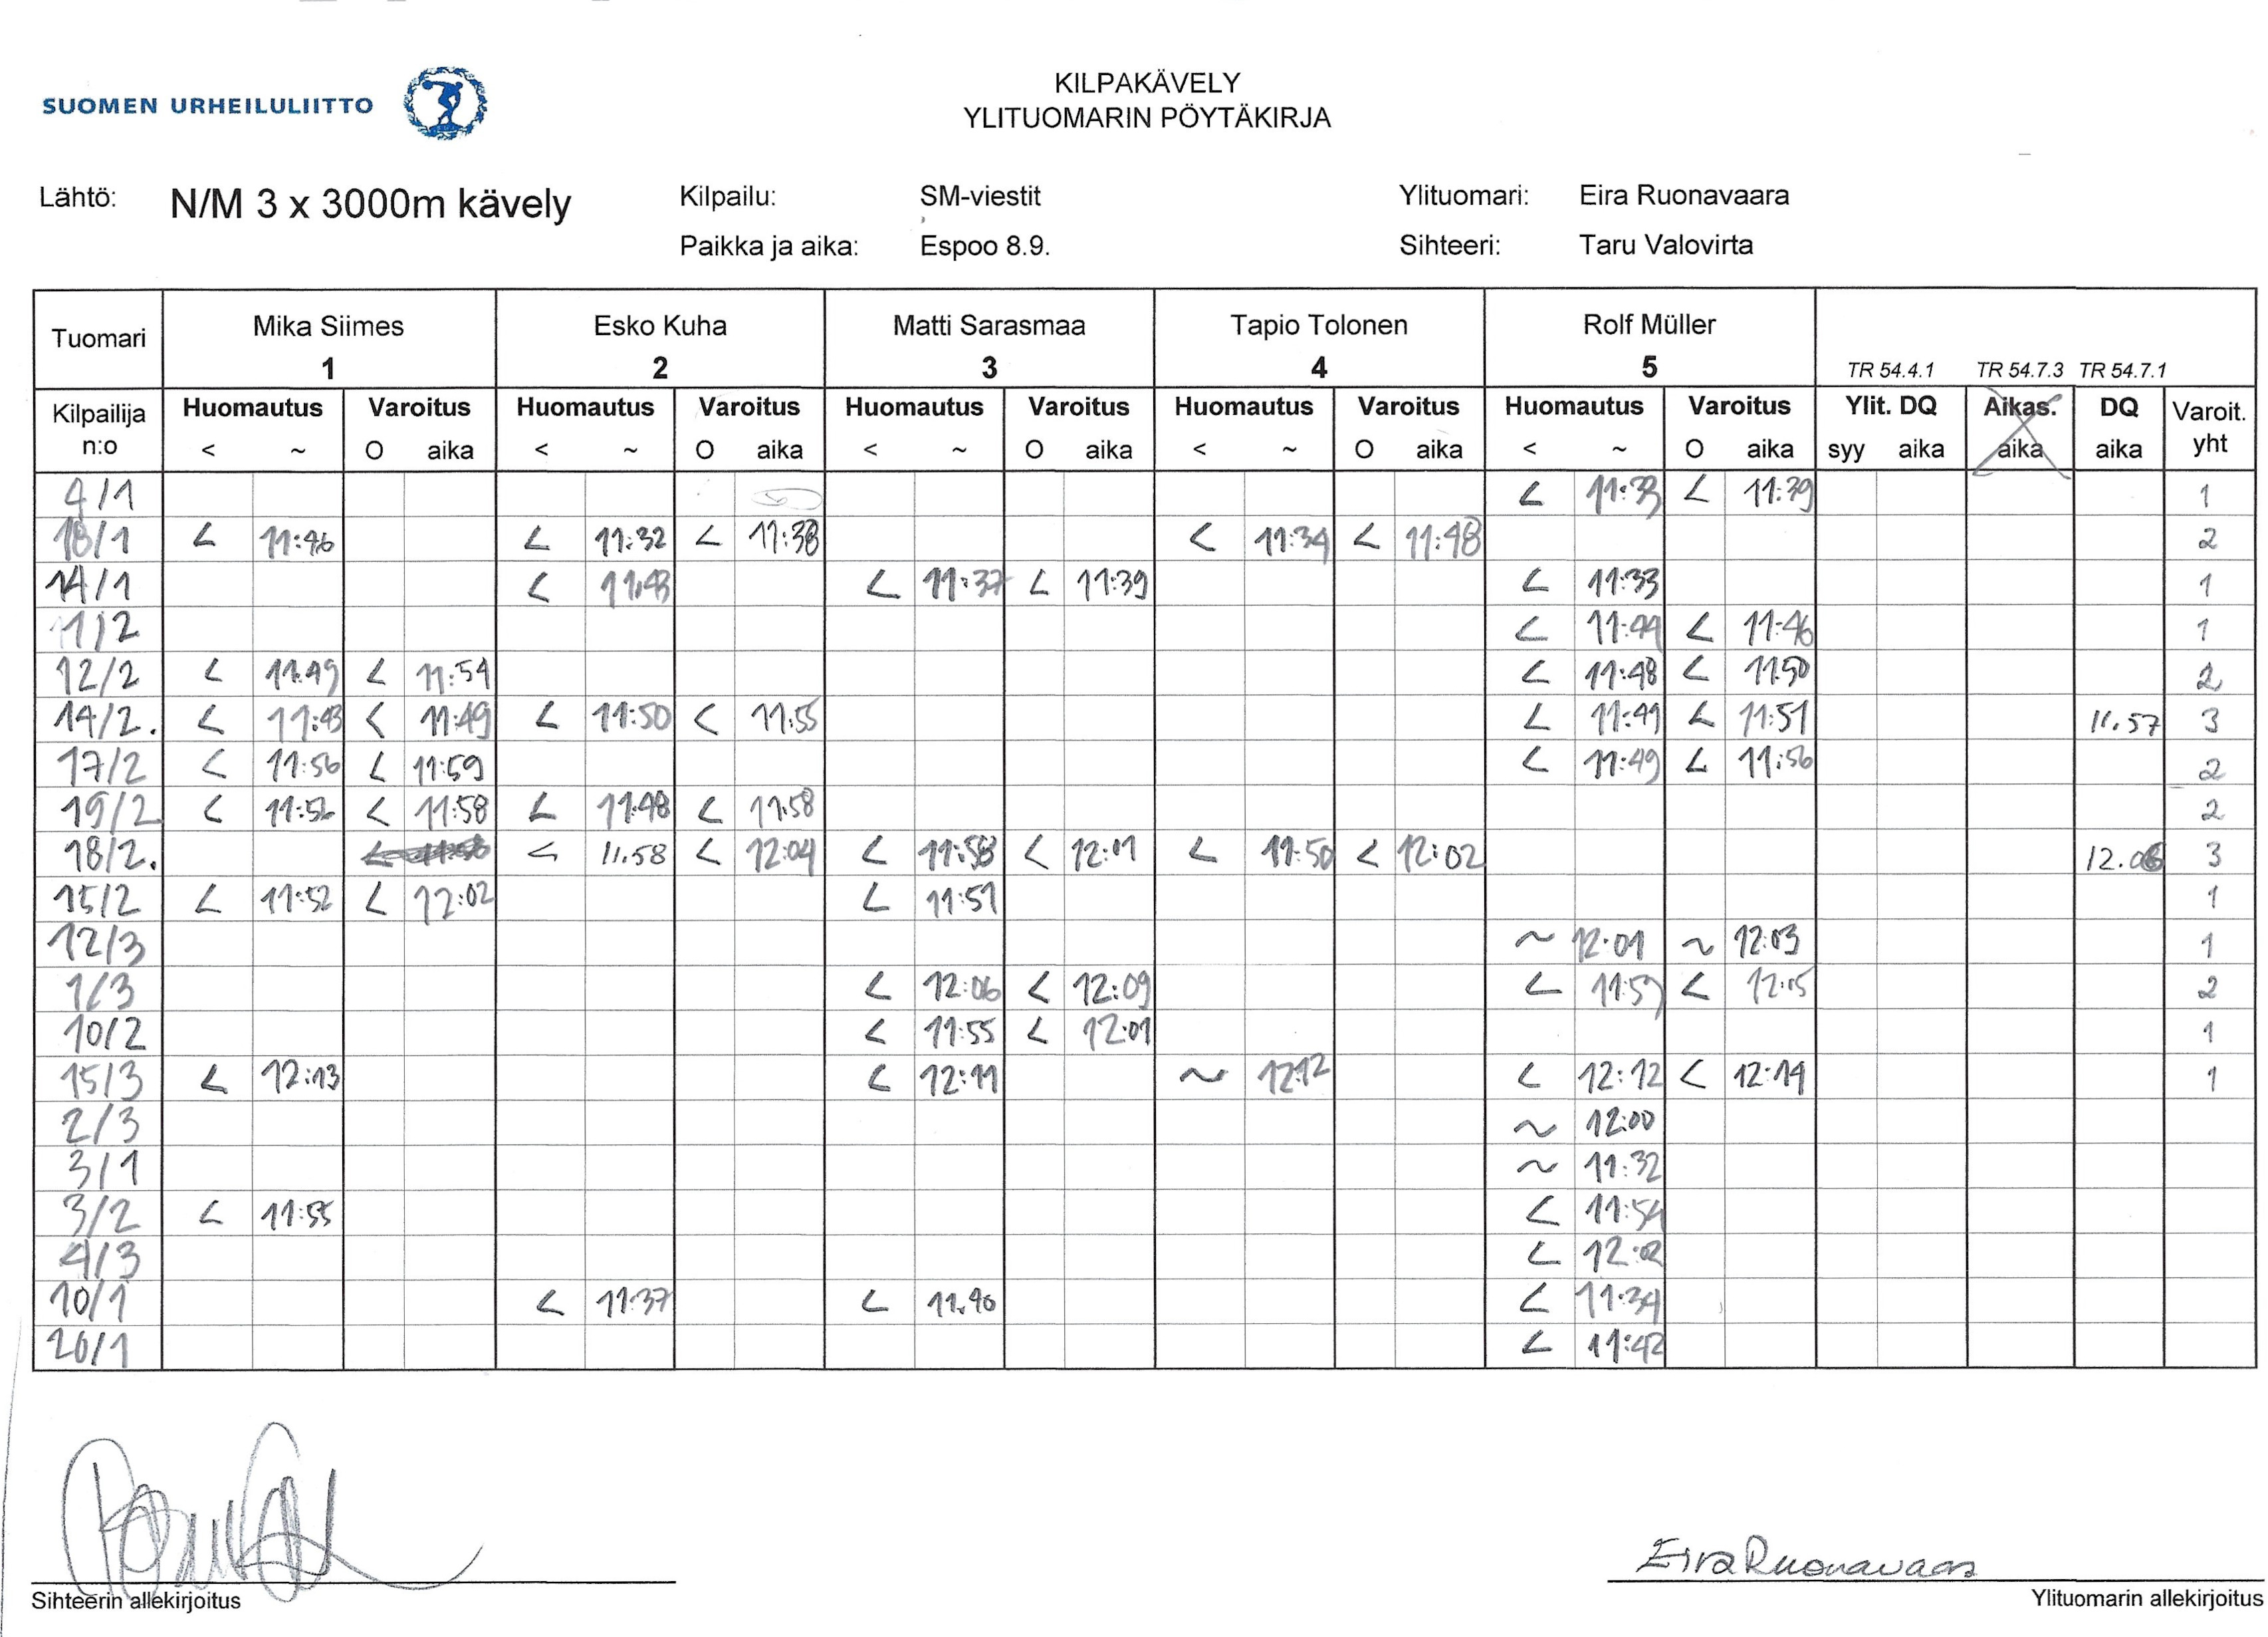 SUOMEN URHEILULIITTO
KILPAKÄVELY
YLITUOMARIN PÖYTÄKIRJA
Lähtö: N/M 3 x 3000m kävely Kilpailu: SM-viestit Ylituomari: Eira Ruonavaara
Paikka ja aika: Espoo 8.9. Sihteeri: Taru Valovirta
Tuomari Mika Siimes Esko Kuha Matti Sarasmaa Tapio Tolonen Rolf Müller
1 2 3 4 5 TR 54.4.1 TR 54.7.3 TR 54.7.1
Kilpailija Huomautus Varoitus Huomautus Varoitus Huomautus Varoitus Huomautus Varoitus Huomautus Varoitus Ylit. DQ Aikas. DQ Varoit.
n:o < ~ O aika < ~ O aika < ~ O aika < ~ O aika < ~ O aika syy aika aika aika yht
4/1 < 11:33 < 11:39 1
18/1 < 11:46 < 11:32 < 11:38 < 11:34 < 11:48 2
14/1 < 11:43 < 11:37 < 11:39 < 11:33 1
11/2 < 11:44 < 11:46 1
12/2 < 11:49 < 11:54 < 11:48 < 11:50 2
14/2. < 11:43 < 11:49 < 11:50 < 11:55 < 11:41 < 11:51 11.57 3
17/2 < 11:56 < 11:59 < 11:49 < 11:56 2
19/2 < 11:56 < 11:58 < 11:48 < 11:58 2
18/2. < 11.58 < 12:04 < 11:58 < 12:01 < 11:50 < 12:02 12.06 3
15/2 < 11:52 < 12:02 < 11:51 1
12/3 ~ 12:01 ~ 12:03 1
1/3 < 12:06 < 12:09 < 11:59 < 12:15 2
10/2 < 11:55 < 12:01 1
15/3 < 12:13 < 12:11 ~ 12:12 < 12:12 < 12:14 1
2/3 ~ 12:00
3/1 ~ 11:32
3/2 < 11:55 < 11:54
4/3 < 12:02
10/1 < 11:37 < 11.40 < 11:34
20/1 < 11:42
Eira Ruonavaara
Sihteerin allekirjoitus Ylituomarin allekirjoitus